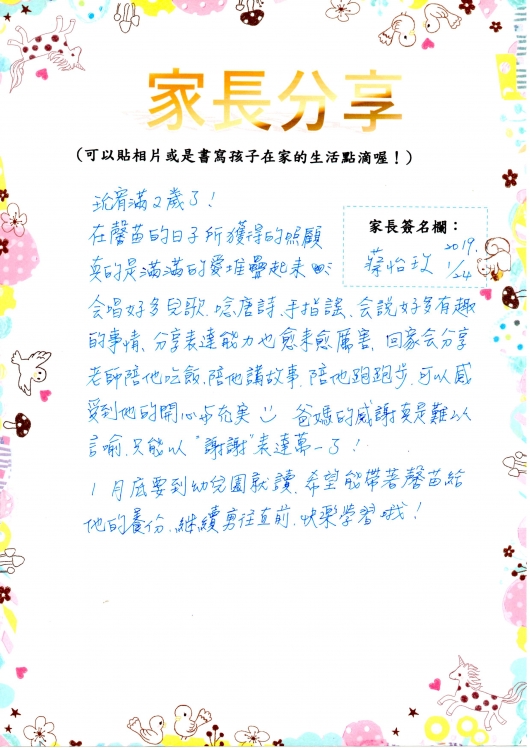 家長分享
(可以貼相片或是書寫孩子在家的生活點滴喔！)
家長簽名欄：
2019.
蔡怡玟 1/24
玧宥滿2歲了！
在馨苗的日子所獲得的照顧
真的是滿滿的愛堆疊起來
会唱好多兒歌、唸唐詩、手指謠、会說好多有趣
的事情、分享表達能力也愈來愈厲害，回家会分享
老師陪他吃飯、陪他講故事、陪他跑跑步，可以感
受到他的開心与充實 爸媽的感謝真是難以
言喻，只能以"謝謝"表達萬一了！
1月底要到幼兒園就讀，希望能帶著馨苗給
他的養份，継續勇往直前，快樂学習哦！